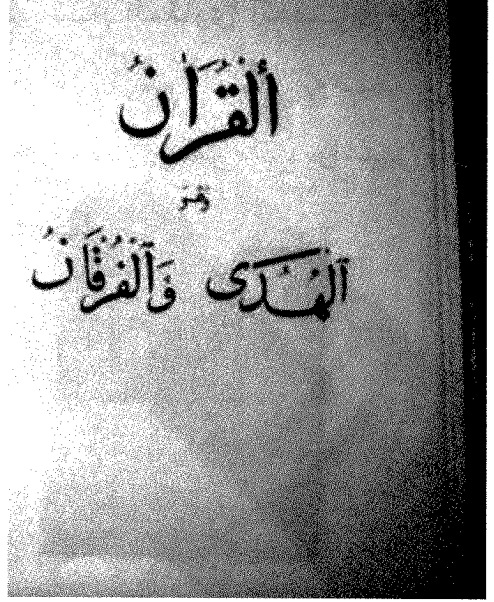 أَلْقُرْآنُ
وَهُوَ
أَلْهُدَى وَٱلْفُرْقَانُ